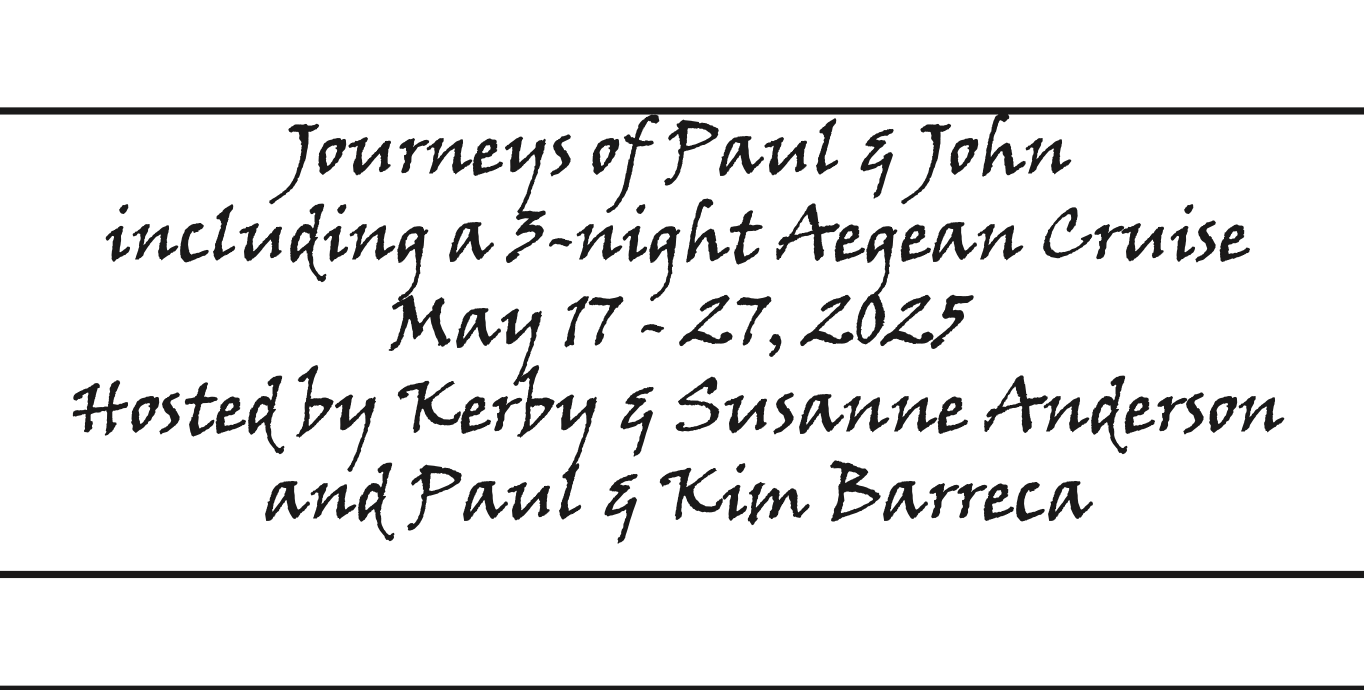 Journeys of Paul & John
including a 3-night Aegean Cruise
May 17 - 27, 2025
Hosted by Kerby & Susanne Anderson
and Paul & Kim Barreca